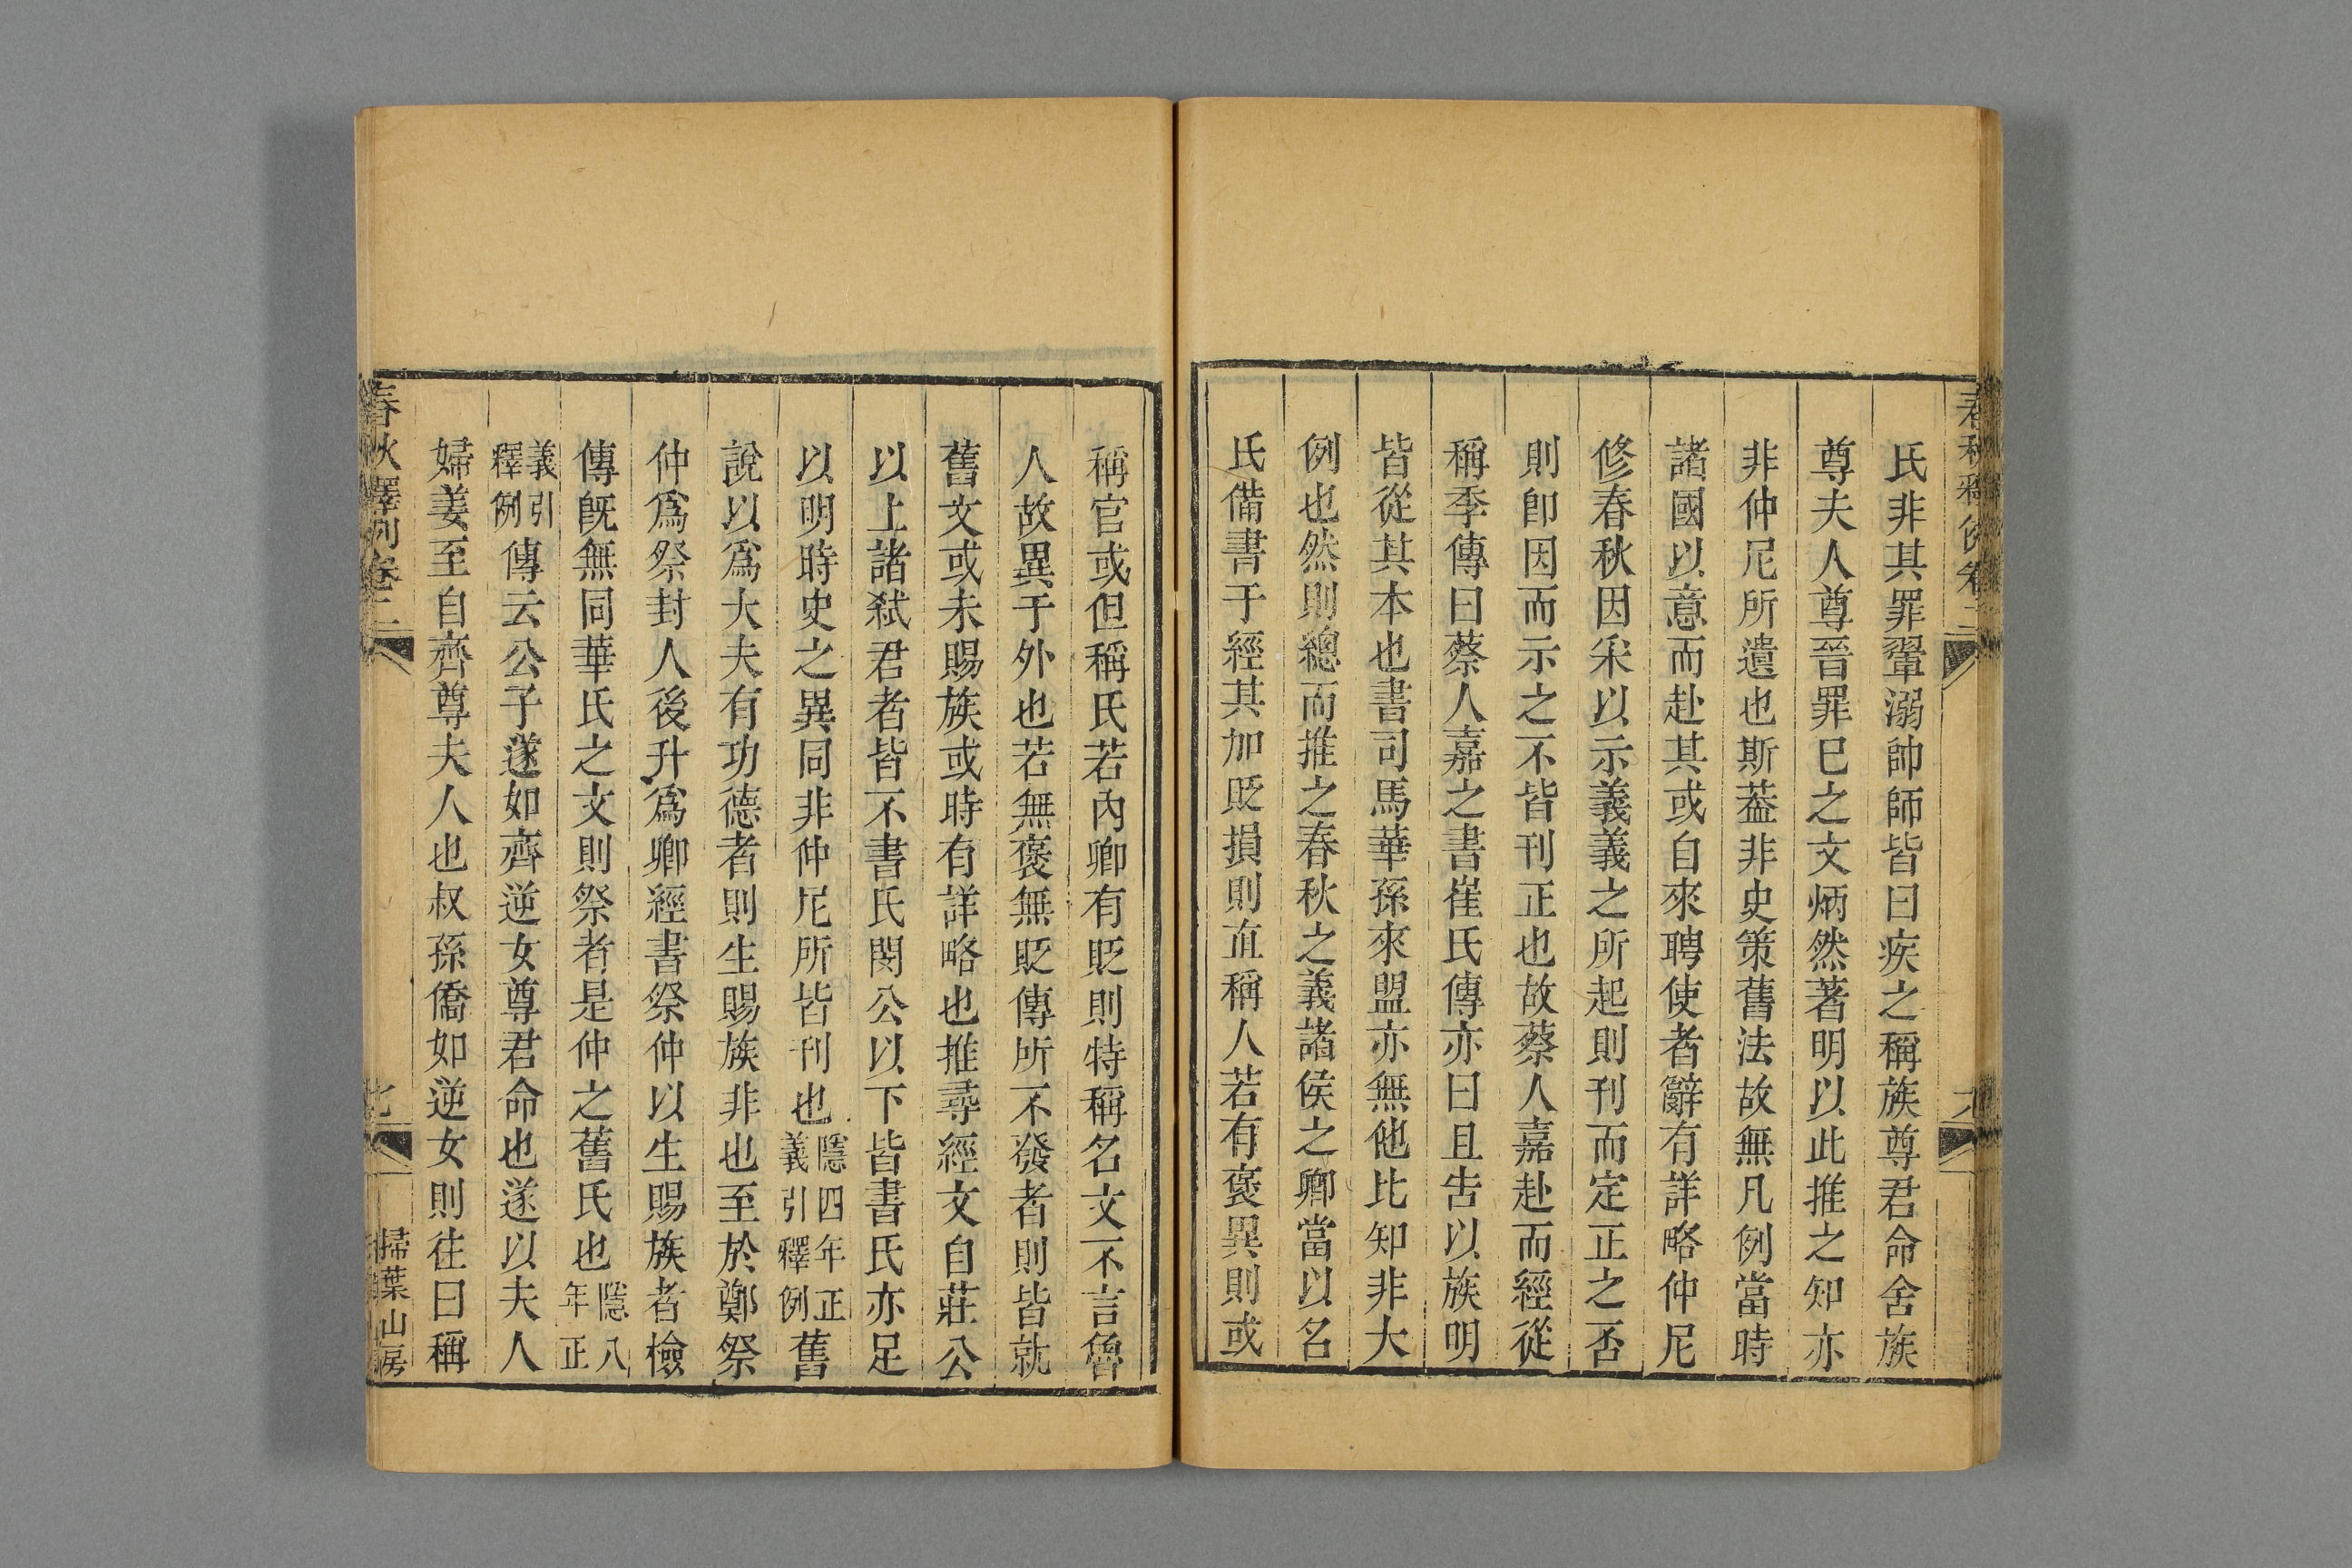 氏非其罪翬溺帥師皆曰疾之稱族尊君命舍族
尊夫人尊晉罪已之文炳然著明以此推之知亦
非仲尼所遺也斯葢非史策舊法故無凡例當時
諸國以意而赴其或自來聘使者辭有詳略仲尼
修春秋因采以示義義之所起則刊而定正之否
則卽因而示之不皆刊正也故蔡人嘉赴而經從
稱季傳曰蔡人嘉之書崔氏傳亦曰且告以族明
皆從其本也書司馬華孫來盟亦無他比知非大
例也然則總而推之春秋之義諸侯之卿當以名
氏備書于經其加貶損則直稱人若有褒異則或
稱官或但稱氏若內卿有貶則特稱名文不言魯
人故異于外也若無褒無貶傳所不發者則皆就
舊文或未賜族或時有詳略也推尋經文自莊公
以上諸弒君者皆不書氏閔公以下皆書氏亦足
以明時史之異同非仲尼所皆刊也隱四年正義引釋例舊
說以爲大夫有功德者則生賜族非也至於鄭祭
仲爲祭封人後升爲卿經書祭仲以生賜族者檢
傳旣無同華氏之文則祭者是仲之舊氏也隱八年正
義引釋例傳云公子遂如齊逆女尊君命也遂以夫人
婦姜至自齊尊夫人也叔孫僑如逆女則往曰稱
春秋釋例卷二
七
掃葉山房